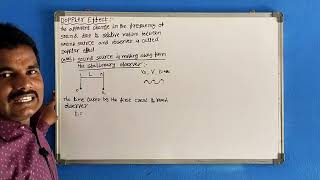 DOPPLER Effect:
the apparent change in the frequency of
sound due to relative motion between
source and observer is called
Doppler effect
Case(i) Sound source is moving away from
the stationary observer :-
L
The time taken by the first crest to reach
observer
t₁ =